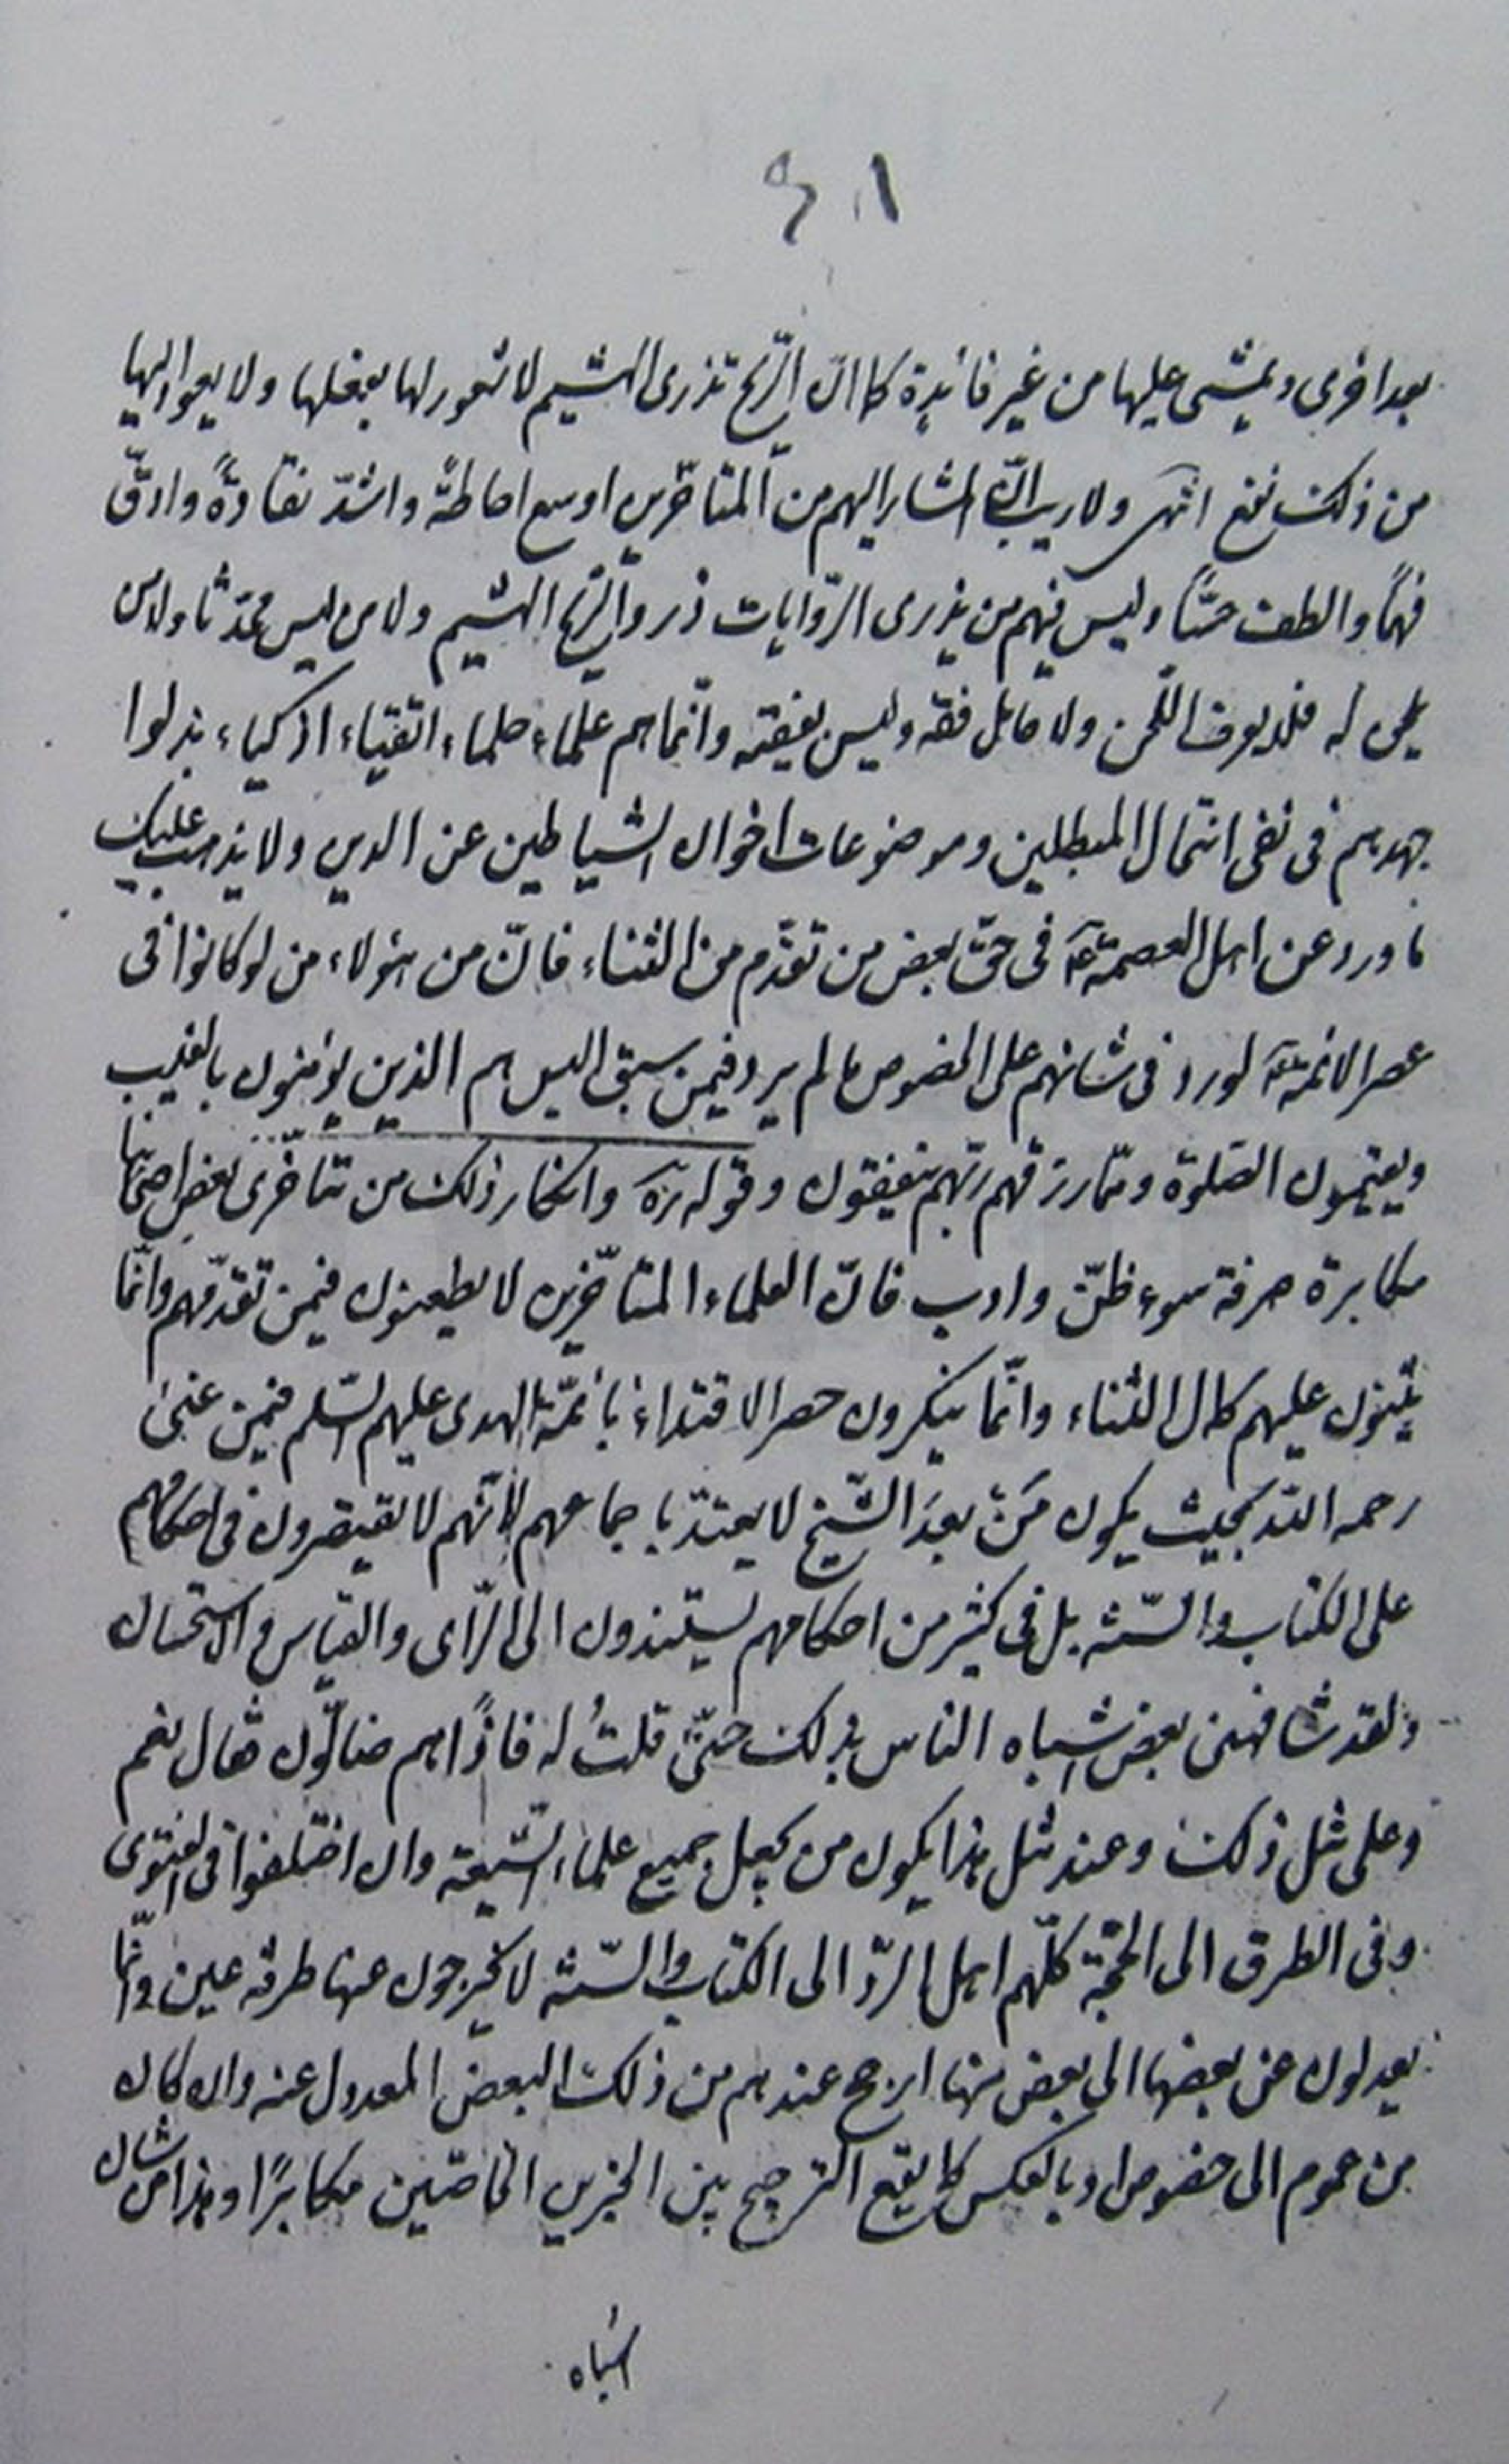 ٤٠١
بعد اخرى ويمشى عليها من غير فائدة كما انّ الرّيح تذرى الهشيم لا شعور لها بفعلها ولا يعود اليها
من ذلك نفع انتهى ولا ريب انّ المشار اليهم من المتاخّرين اوسع احاطةً واشدّ نقادةً وادقّ
فهمًا والطف حسًّا وليس فيهم من يذرى الرّوايات ذرو الرّيح الهشيم ولا من ليس محدّثا ولا من
يلحن له فلا يعرف اللّحن ولا حامل فقه وليس بفقيه وانّما هم علماء حلماء اتقياء اذكياء بذلوا
جهدهم فى نفى انتحال المبطلين وموضوعات اخوان الشياطين عن الدين ولا يذهب عليك
ما ورد عن اهل العصمة ع فى حقّ بعض من تقدّم من الثناء فانّ من هؤلاء من لو كانوا فى
عصر الائمة ع لورد فى شانهم على الخصوص ما لم يرد فيمن سبق اليس هم الذين يؤمنون بالغيب
ويقيمون الصّلوة وممّا رزقهم ربّهم ينفقون وقوله ره وانكار ذلك من متاخّرى بعض اصحابنا
مكابرة صرفة سوء ظنّ وادب فانّ العلماء المتاخّرين لا يطعنون فيمن تقدّمهم وانّما
يثنون عليهم كمال الثناء وانّما ينكرون حصر الاقتداء بائمّة الهدى عليهم السّلم فيمن عنى
رحمه الله بحيث يكون مَن بعدَ الشّيخ لا يعتدّ باجماعهم لانّهم لا يقتصرون فى احكامهم
على الكتاب والسّنّة بل فى كثير من احكامهم يستندون الى الرّاى والقياس والاستحسان
ولقد شافهنى بعض اشباه الناس بذلك حتّى قلتُ له فاذًا هم ضالّون فقال نعم
وعلى مثل ذلك وعند مثل هذا يكون من يجعل جميع علماء الشّيعة وان اختلفوا فى الفتوى
وفى الطرق الى الحجّة كلّهم اهل الرّدّ الى الكتاب والسّنّة لا يخرجون عنها طرفة عين وانّما
يعدلون عن بعضها الى بعض منها ارجح عندهم من ذلك البعض المعدول عنه وان كان
من عموم الى خصوص او بالعكس كما يقع الترجيح بين الخبرين الخاصّين مكابرًا وهذا من شان
اشباه